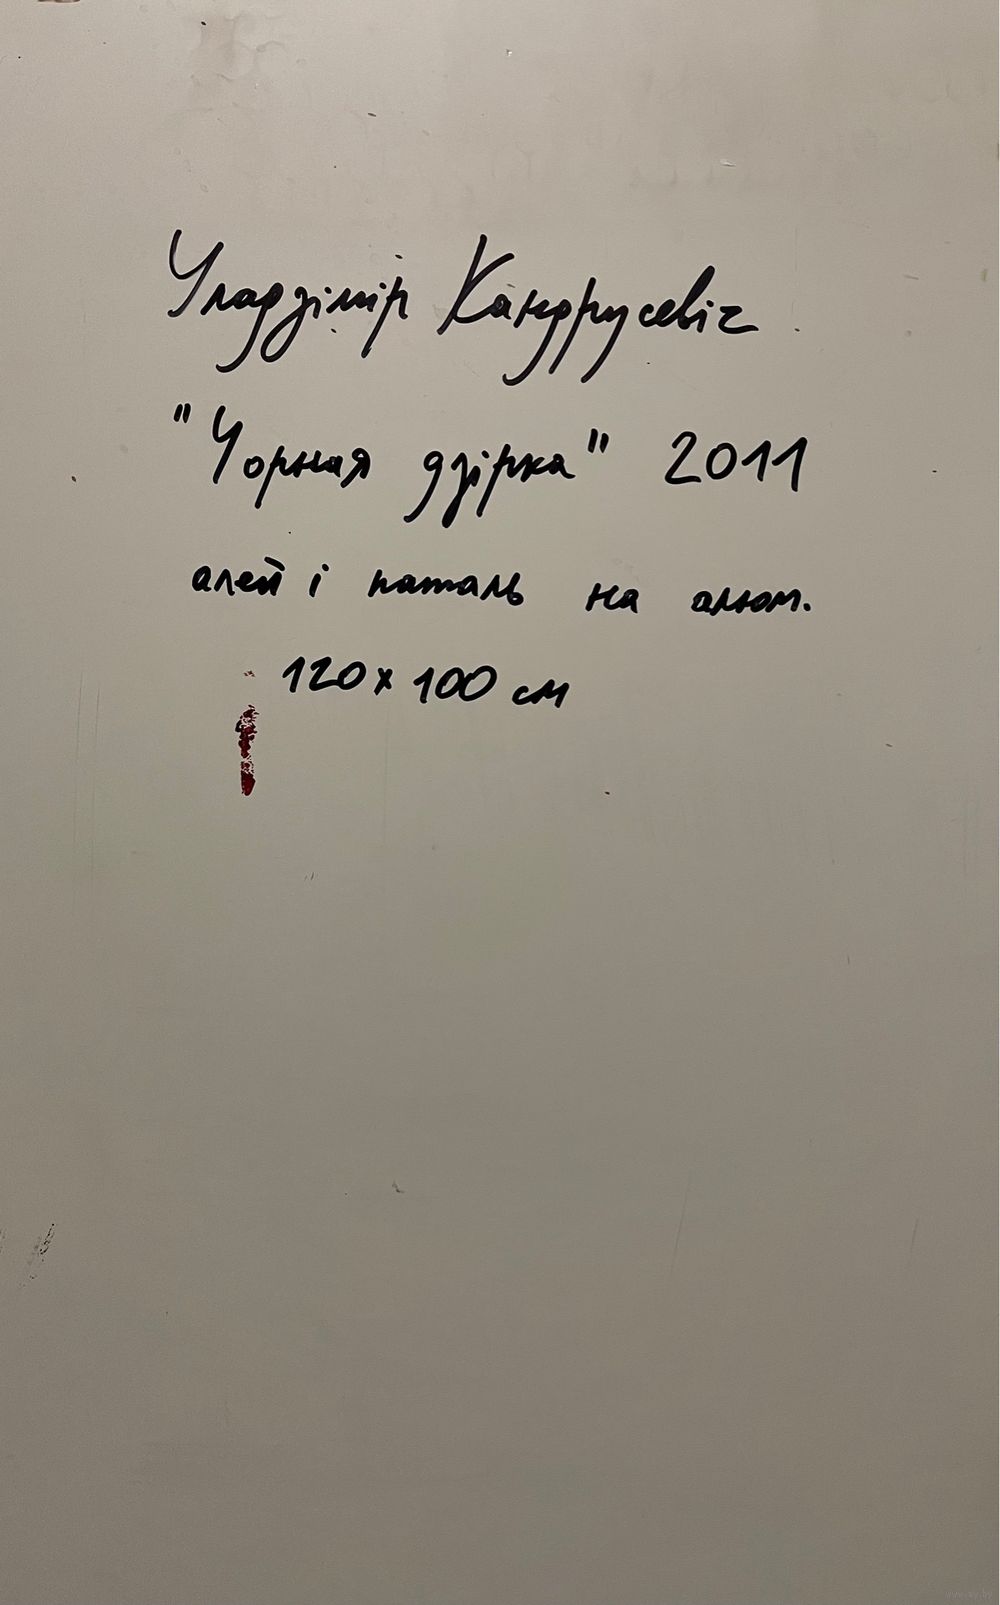 Уладзімір Кандрусевіч
"Чорная дзірка" 2011
алей і паталь на алюм.
120 х 100 см